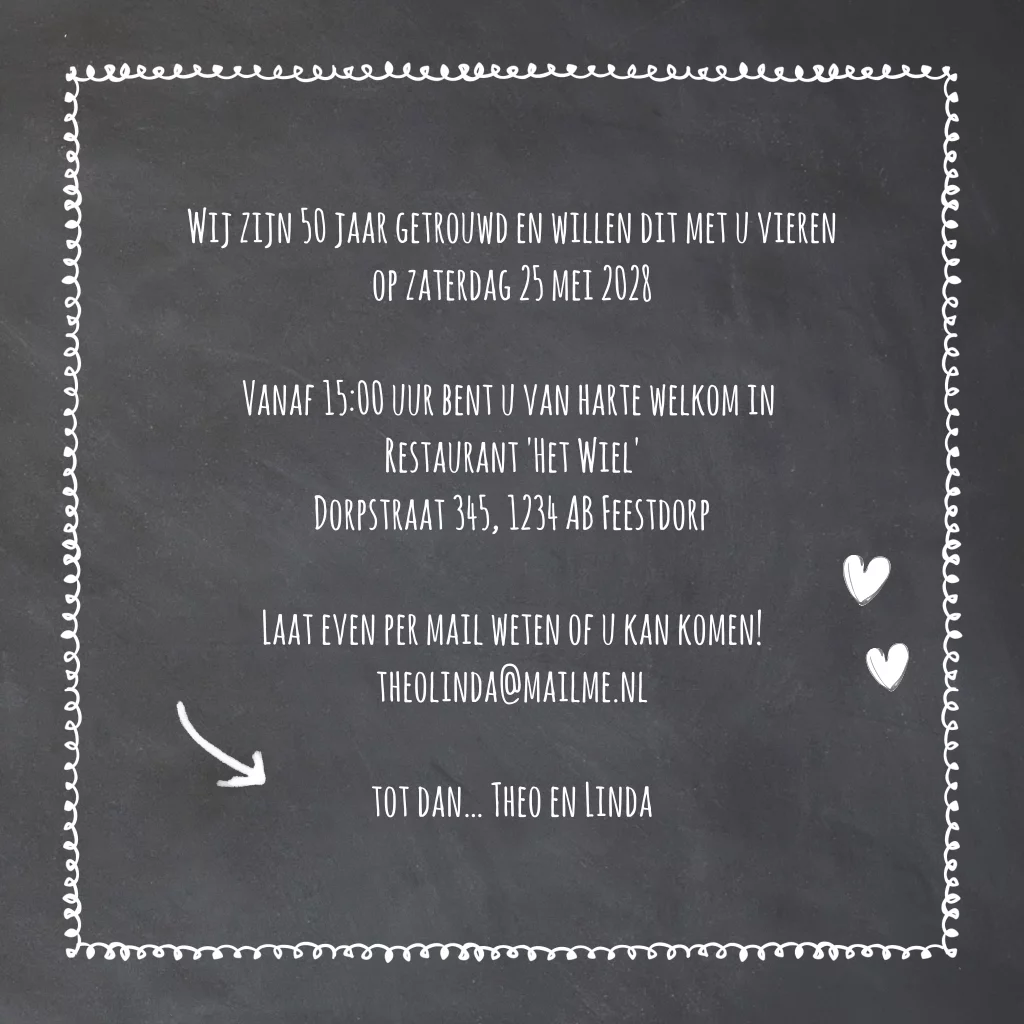 Wij zijn 50 jaar getrouwd en willen dit met u vieren
op zaterdag 25 mei 2028
Vanaf 15:00 uur bent u van harte welkom in
Restaurant 'Het Wiel'
Dorpstraat 345, 1234 AB Feestdorp
Laat even per mail weten of u kan komen!
theolinda@mailme.nl
tot dan... Theo en Linda